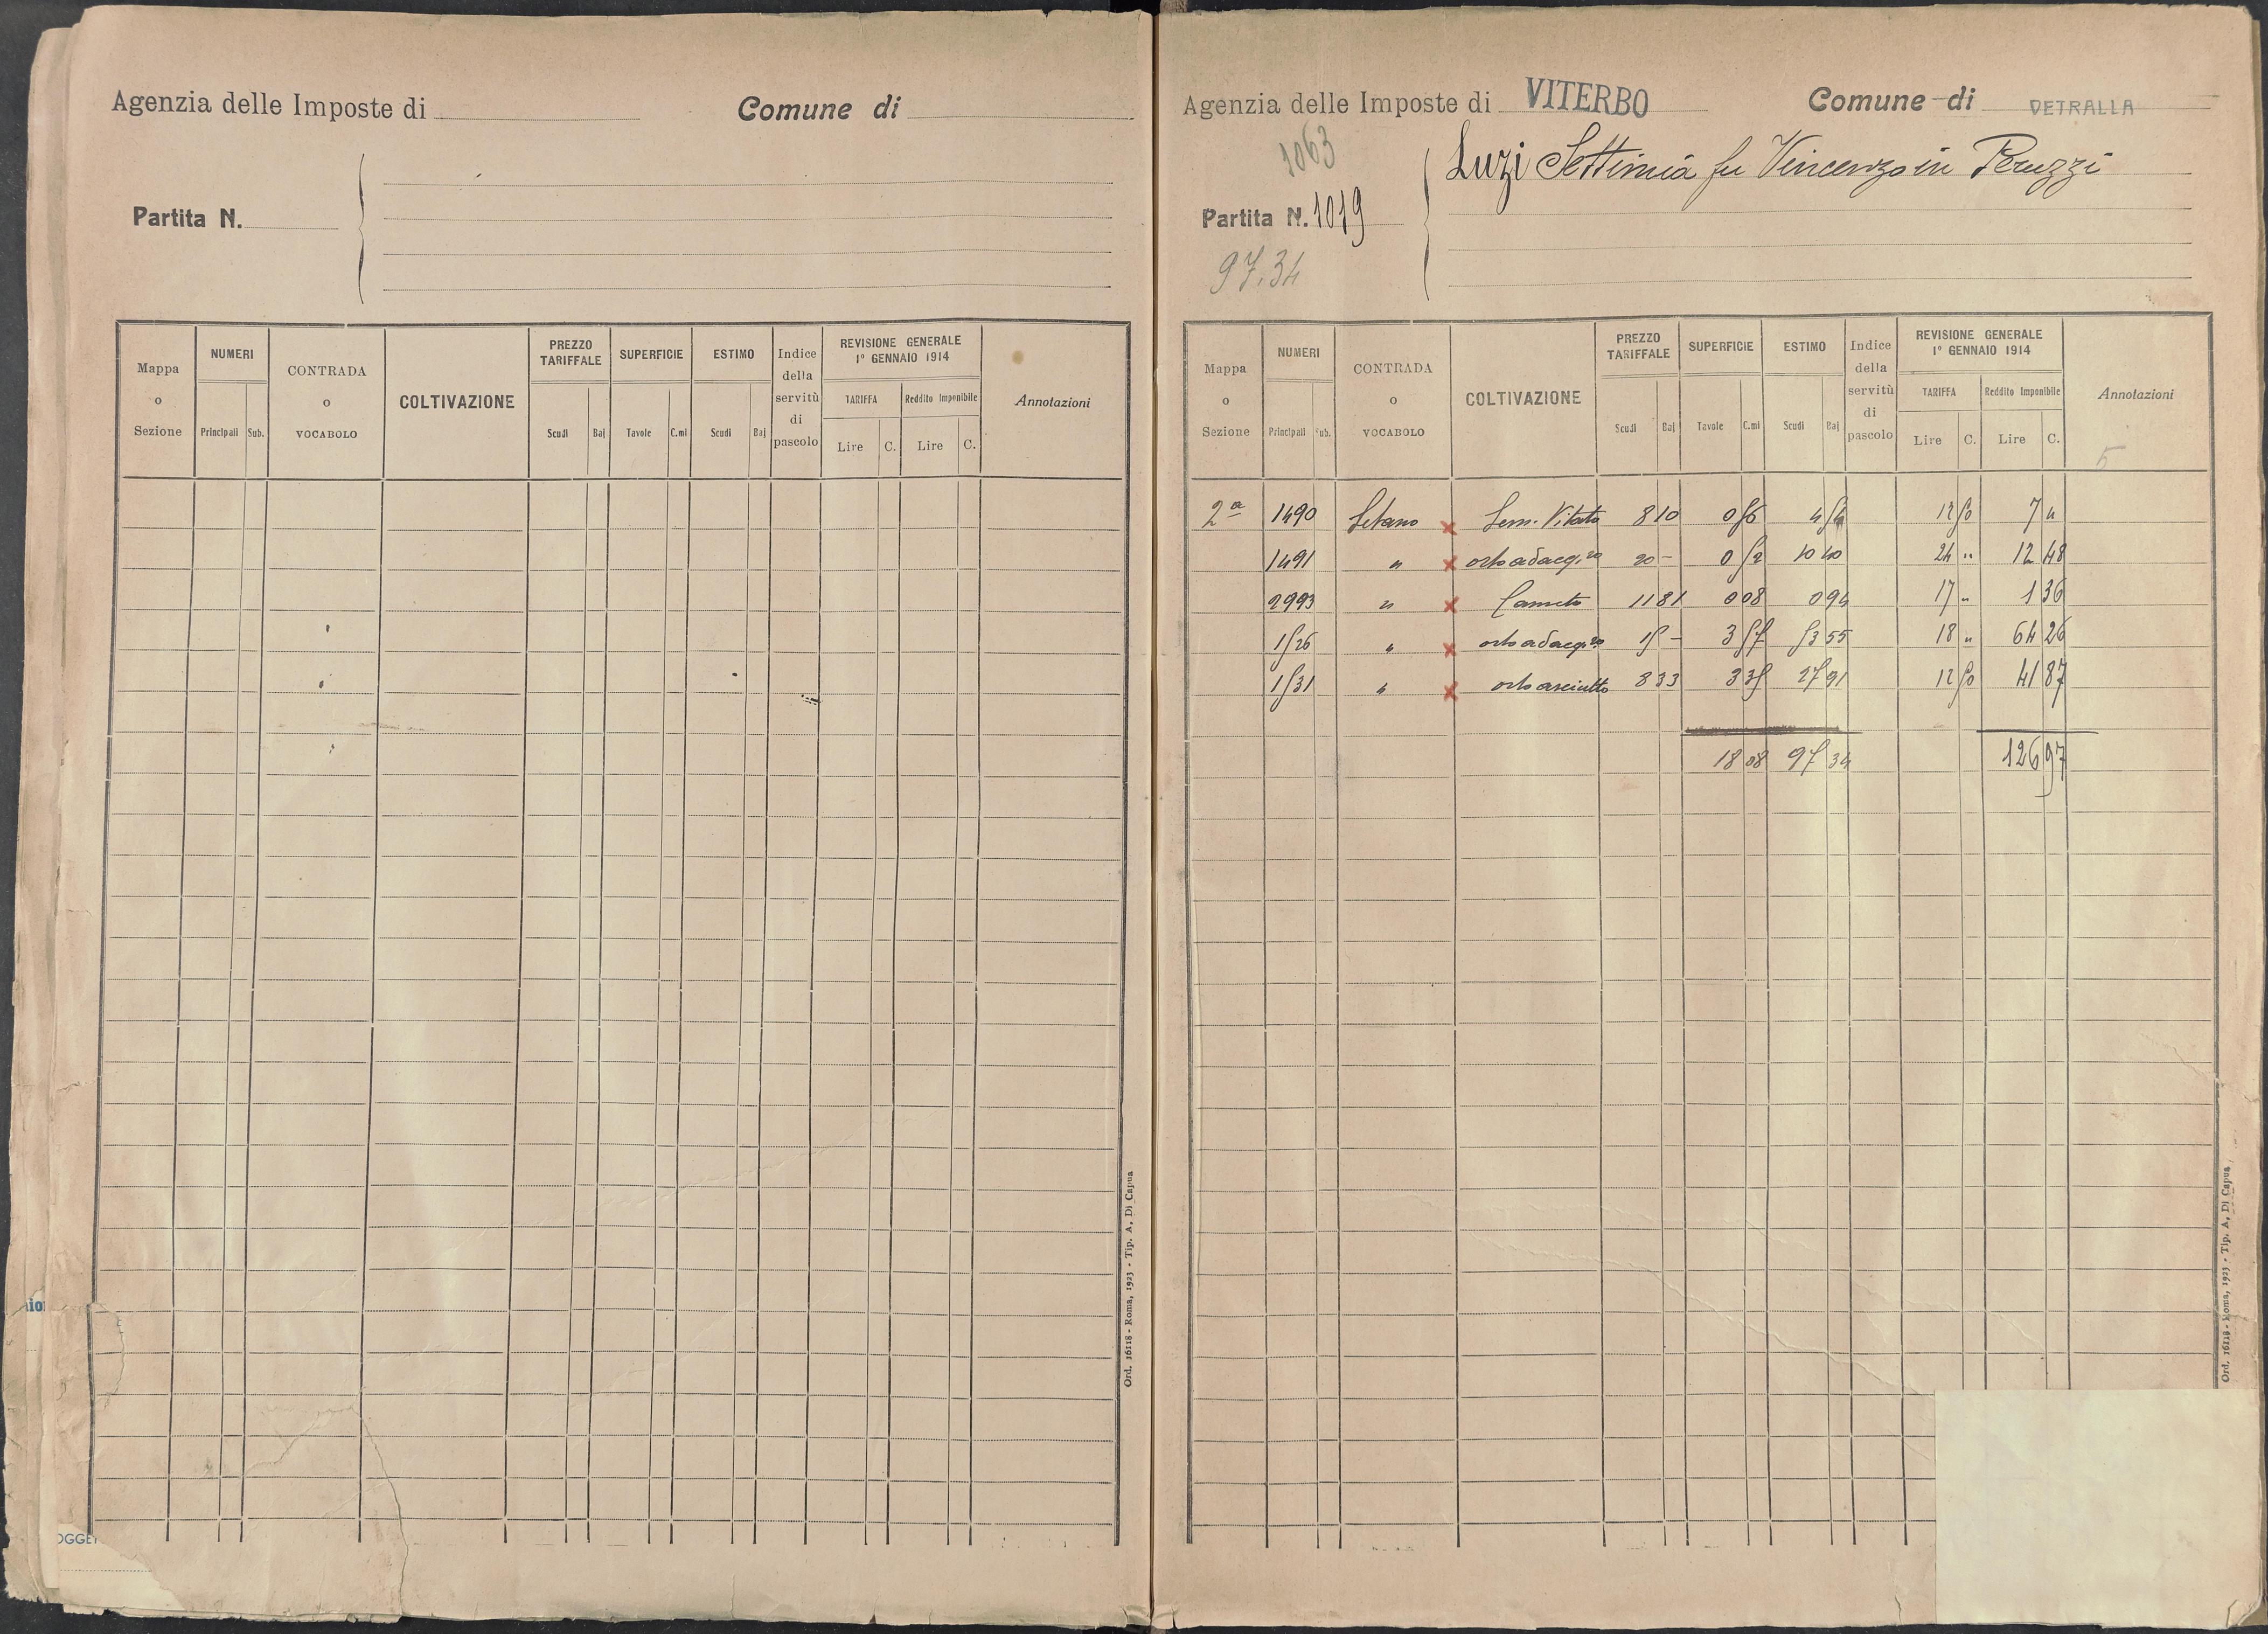 Agenzia delle Imposte di
Comune di
Partita N.
Mappa o Sezione
NUMERI
Principali Sub.
CONTRADA o VOCABOLO
COLTIVAZIONE
PREZZO TARIFFALE
Scudi Baj
SUPERFICIE
Tavole C.mi
ESTIMO
Scudi Baj
Indice della servitù di pascolo
REVISIONE GENERALE
1° GENNAIO 1914
TARIFFA Reddito Imponibile
Lire C. Lire C.
Annotazioni
Ord. 16118 - Roma, 1923 - Tip. A. Di Capua
Agenzia delle Imposte di VITERBO
Comune di VETRALLA
1063
Luzi Settimia fu Vincenzo in Peruzzi
Partita N. 1019
97.34
Mappa o Sezione
NUMERI
Principali Sub.
CONTRADA o VOCABOLO
COLTIVAZIONE
PREZZO TARIFFALE
Scudi Baj
SUPERFICIE
Tavole C.mi
ESTIMO
Scudi Baj
Indice della servitù di pascolo
REVISIONE GENERALE
1° GENNAIO 1914
TARIFFA Reddito Imponibile
Lire C. Lire C.
Annotazioni
5
2a 1490 x Sem. Vitato 8 10 0 56 4 54 12 50 7 "
1491 " x orto adacq.to 20 - 0 52 10 40 24 " 12 48
2993 " x Canneto 11 81 0 08 0 94 17 " 1 36
1526 " x orto adacq.to 15 - 3 57 53 55 18 " 64 26
1531 " x orto asciutto 8 33 3 35 27 91 12 50 41 87
18 08 97 34 126 97
Ord. 16118 - Roma, 1923 - Tip. A. Di Capua
OGGE